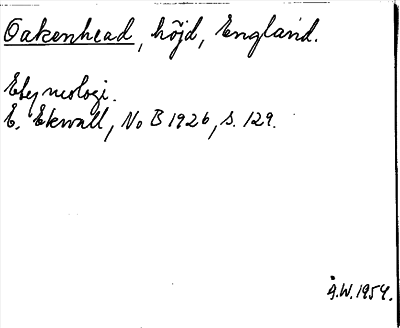 Oakenhead, höjd, England.
Etymologi.
E. Ekwall, NoB 1926, s. 129.
Å.W. 1954.